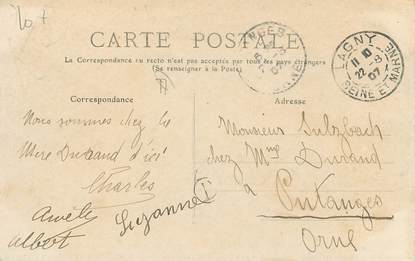 Lot
CARTE POSTALE
La Correspondance au recto n'est pas acceptée par tous les pays étrangers
(Se renseigner à la Poste)
LAGNY
11 10
22 - 8
07
SEINE ET MARNE
Correspondance
Adresse
Nous sommes chez la
Mère Durand d'ici
Charles
Amély
Suzanne
Albert
Monsieur Sulzbach
chez Mme Durand
à
Putanges
Orne